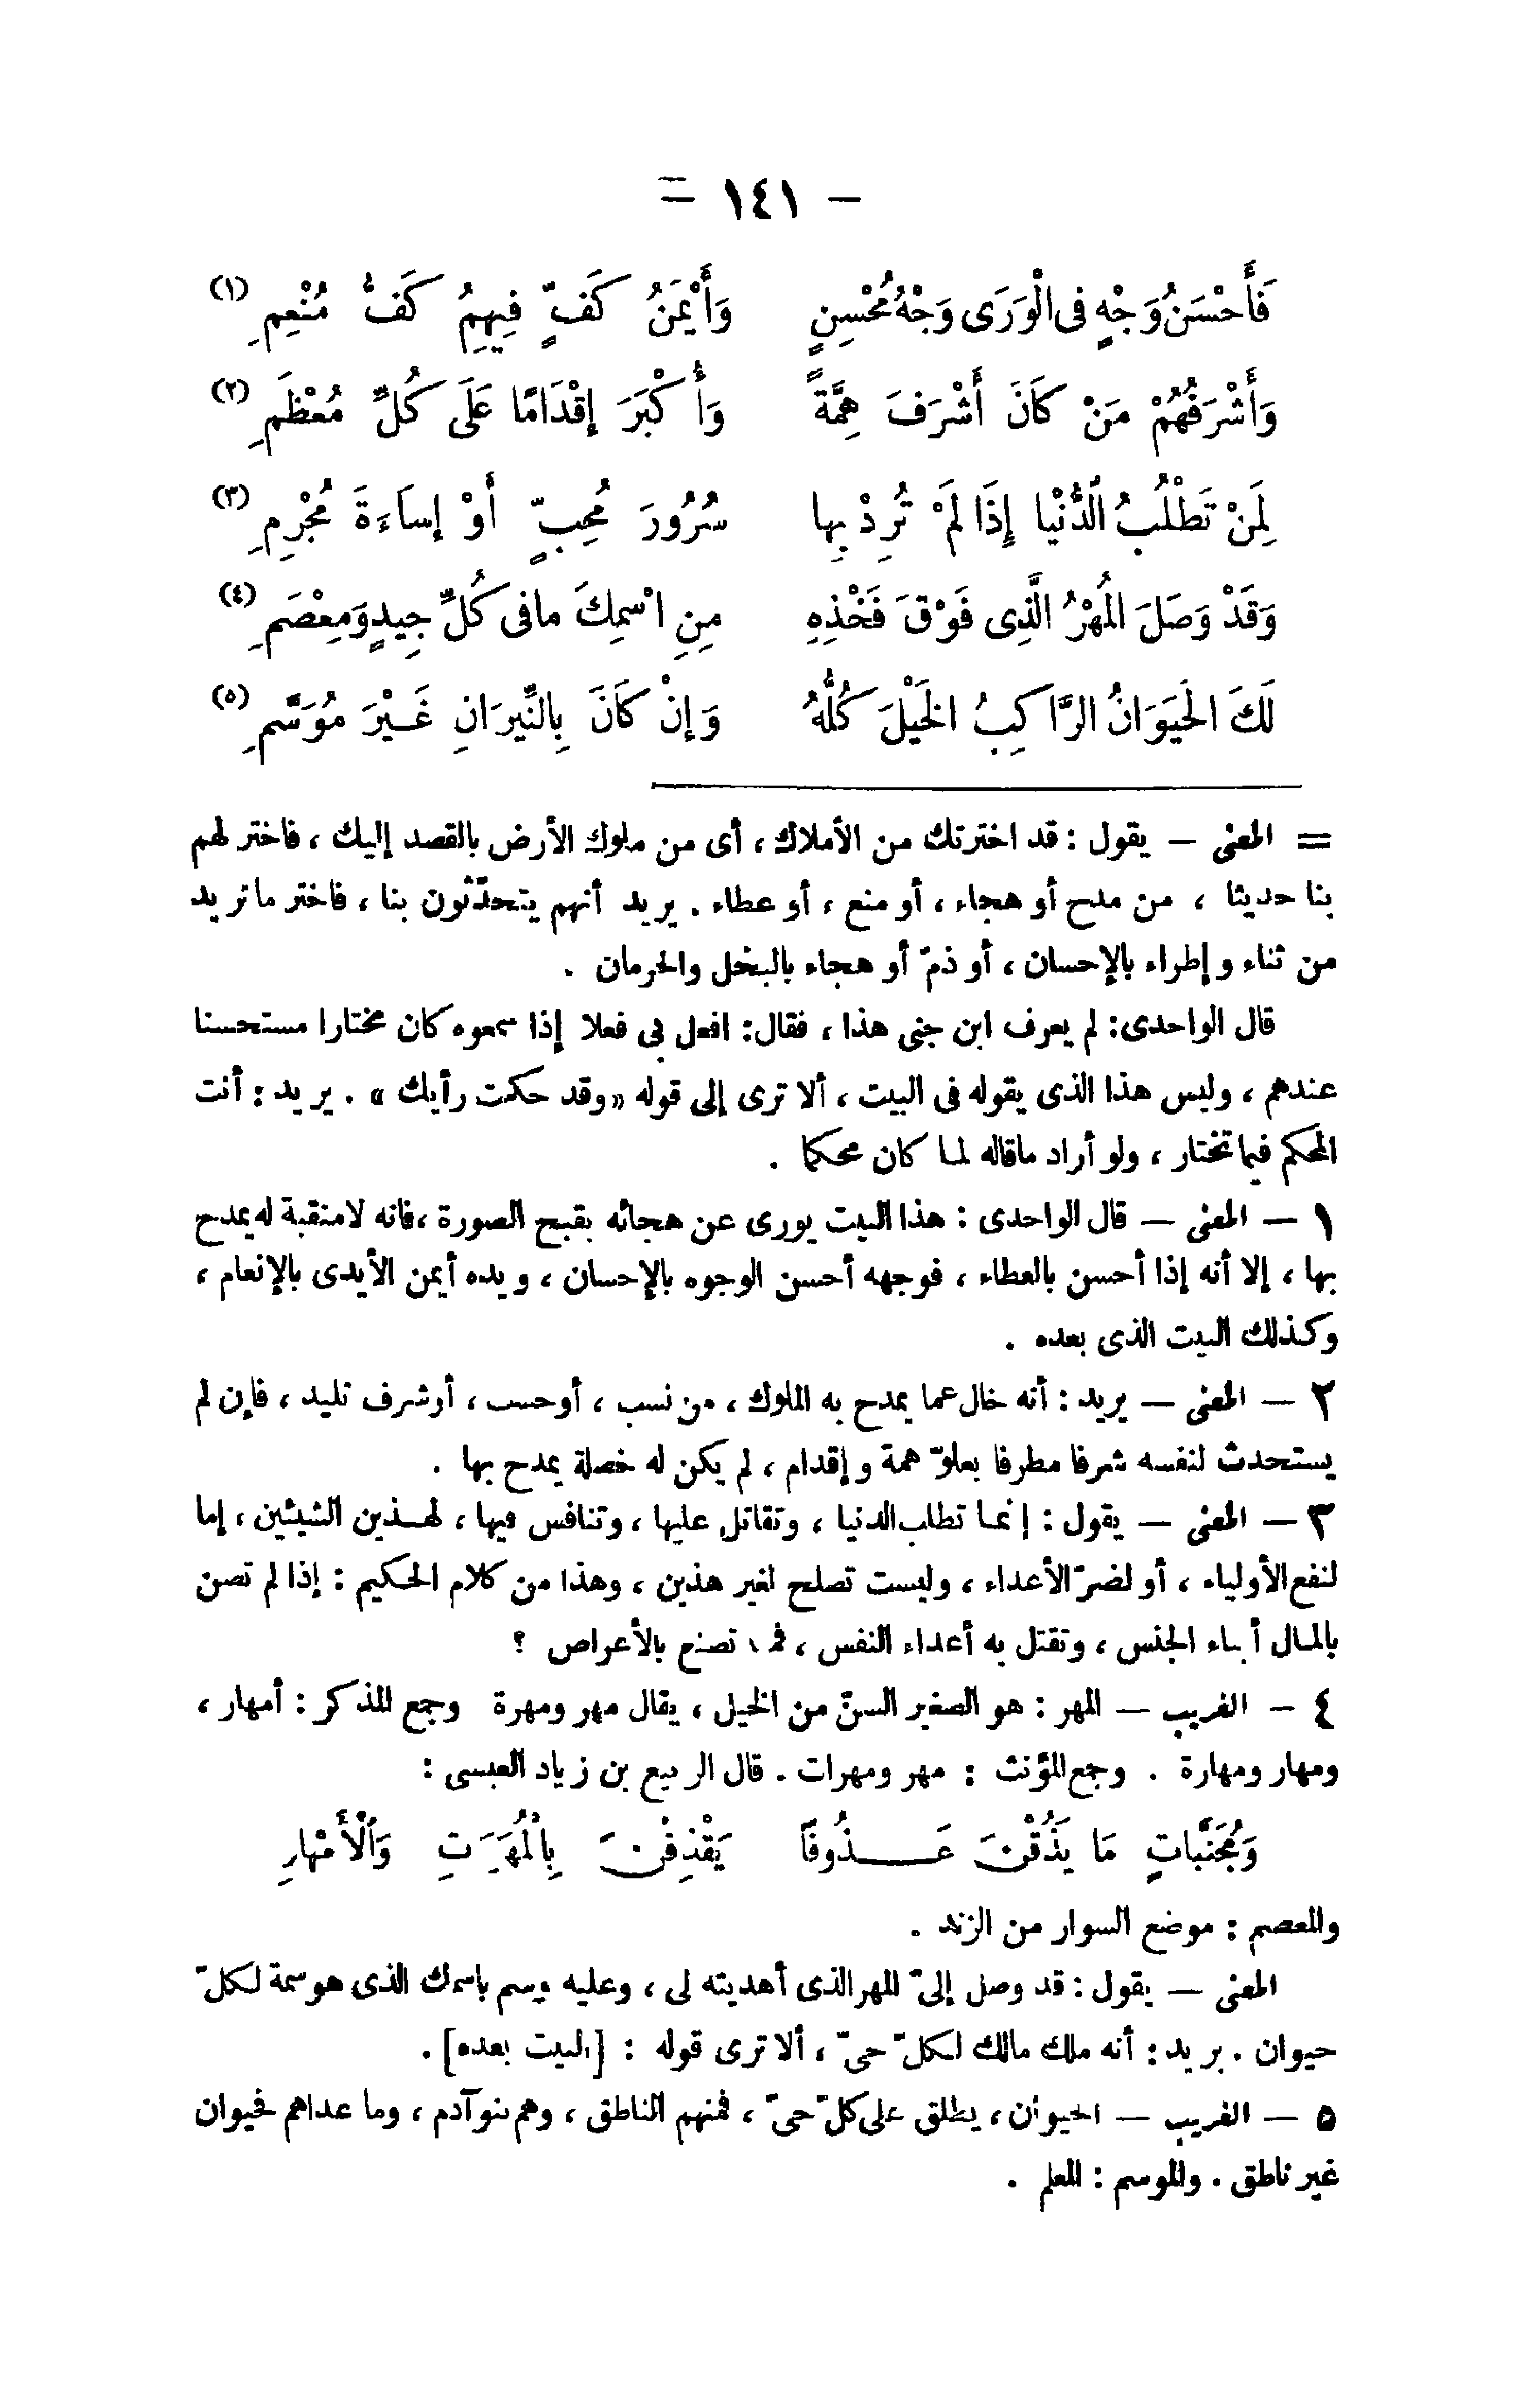 – ١٤١ –
فَأَحْسَنُ وَجْهٍ فى الْوَرَى وَجْهُ مُحْسِنٍ وَأَيْمَنُ كَفٍّ فِيهِمُ كَفُّ مُنْعِمِ (١)
وَأَشْرَفُهُمْ مَنْ كَانَ أَشْرَفَ هِمَّةً وَأَكْبَرَ إِقْدَامًا عَلَى كُلِّ مُعْظَمِ (٢)
لِمَنْ تَطْلُبُ الدُّنْيا إِذَا لَمْ تُرِدْ بِها سُرُورَ مُحِبٍّ أَوْ إساءَةَ مُجْرِمِ (٣)
وَقَدْ وَصَلَ المُهْرُ الَّذِى فَوْقَ فَخْذِهِ مِنِ اسْمِكَ مافى كُلِّ جِيدٍ وَمِعْصَمِ (٤)
لَكَ الحَيَوَانُ الرَّاكِبُ الخَيْلَ كُلُّهُ وَإِنْ كَانَ بِالنِّيرَانِ غَيْرَ مُوَسَّمِ (٥)
= المعنى – يقول : قد اخترتك من الأملاك ، أى من ملوك الأرض بالقصد إليك ، فاختر لهم
بنا حديثا ، من مدح أو هجاء ، أو منع ، أو عطاء . يريد أنهم يتحدّثون بنا ، فاختر ماتريد
من ثناء وإطراء بالإحسان ، أو ذمّ أو هجاء بالبخل والحرمان .
قال الواحدى : لم يعرف ابن جنى هذا ، فقال : افعل بى فعلا إذا سمعوه كان مختارا مستحسنا
عندهم ، وليس هذا الذى يقوله فى البيت ، ألا ترى إلى قوله «وقد حكمت رأيك » . يريد : أنت
المحكم فيما تختار ، ولو أراد ماقاله لما كان محكما .
١ – المعنى – قال الواحدى : هذا البيت يورى عن هجائه بقبح الصورة ، فانه لامنقبة له يمدح
بها ، إلا أنه إذا أحسن بالعطاء ، فوجهه أحسن الوجوه بالإحسان ، ويده أيمن الأيدى بالإنعام ،
وكذلك البيت الذى بعده .
٢ – المعنى – يريد : أنه خال عما يمدح به الملوك ، من نسب ، أوحسب ، أوشرف تليد ، فإن لم
يستحدث لنفسه شرفا مطرفا بعلوّ همة وإقدام ، لم يكن له خصلة يمدح بها .
٣ – المعنى – يقول : إنما تطلب الدنيا ، وتقاتل عليها ، وتنافس فيها ، لهـذين الشيئين ، إما
لنفع الأولياء ، أو لضرّ الأعداء ، وليست تصلح لغير هذين ، وهذا من كلام الحكيم : إذا لم تصن
بالمال أبناء الجنس ، وتقتل به أعداء النفس ، فما تصنع بالأعراض ؟
٤ – الغريب – المهر : هو الصغير السنّ من الخيل ، يقال مهر ومهرة وجمع المذكر : أمهار ،
ومهار ومهارة . وجمع المؤنث : مهر ومهرات . قال الربيع بن زياد العبسى :
وَمُجَنَّباتٍ مَا يَذُقْنَ عَـــذُوفًا يَقْذِفْنَ بِالْمُهَرَتِ وَالْأَمْهارِ
والمعصم : موضع السوار من الزند .
المعنى – يقول : قد وصل إلىّ المهر الذى أهديته لى ، وعليه وسم باسمك الذى هو سمة لكلّ
حيوان . يريد : أنه ملك مالك لكلّ حىّ ، ألا ترى قوله : [البيت بعده] .
٥ – الغريب – الحيوان ، يطلق على كلّ حىّ ، فمنهم الناطق ، وهم بنو آدم ، وما عداهم فحيوان
غير ناطق . والموسم : المعلم .